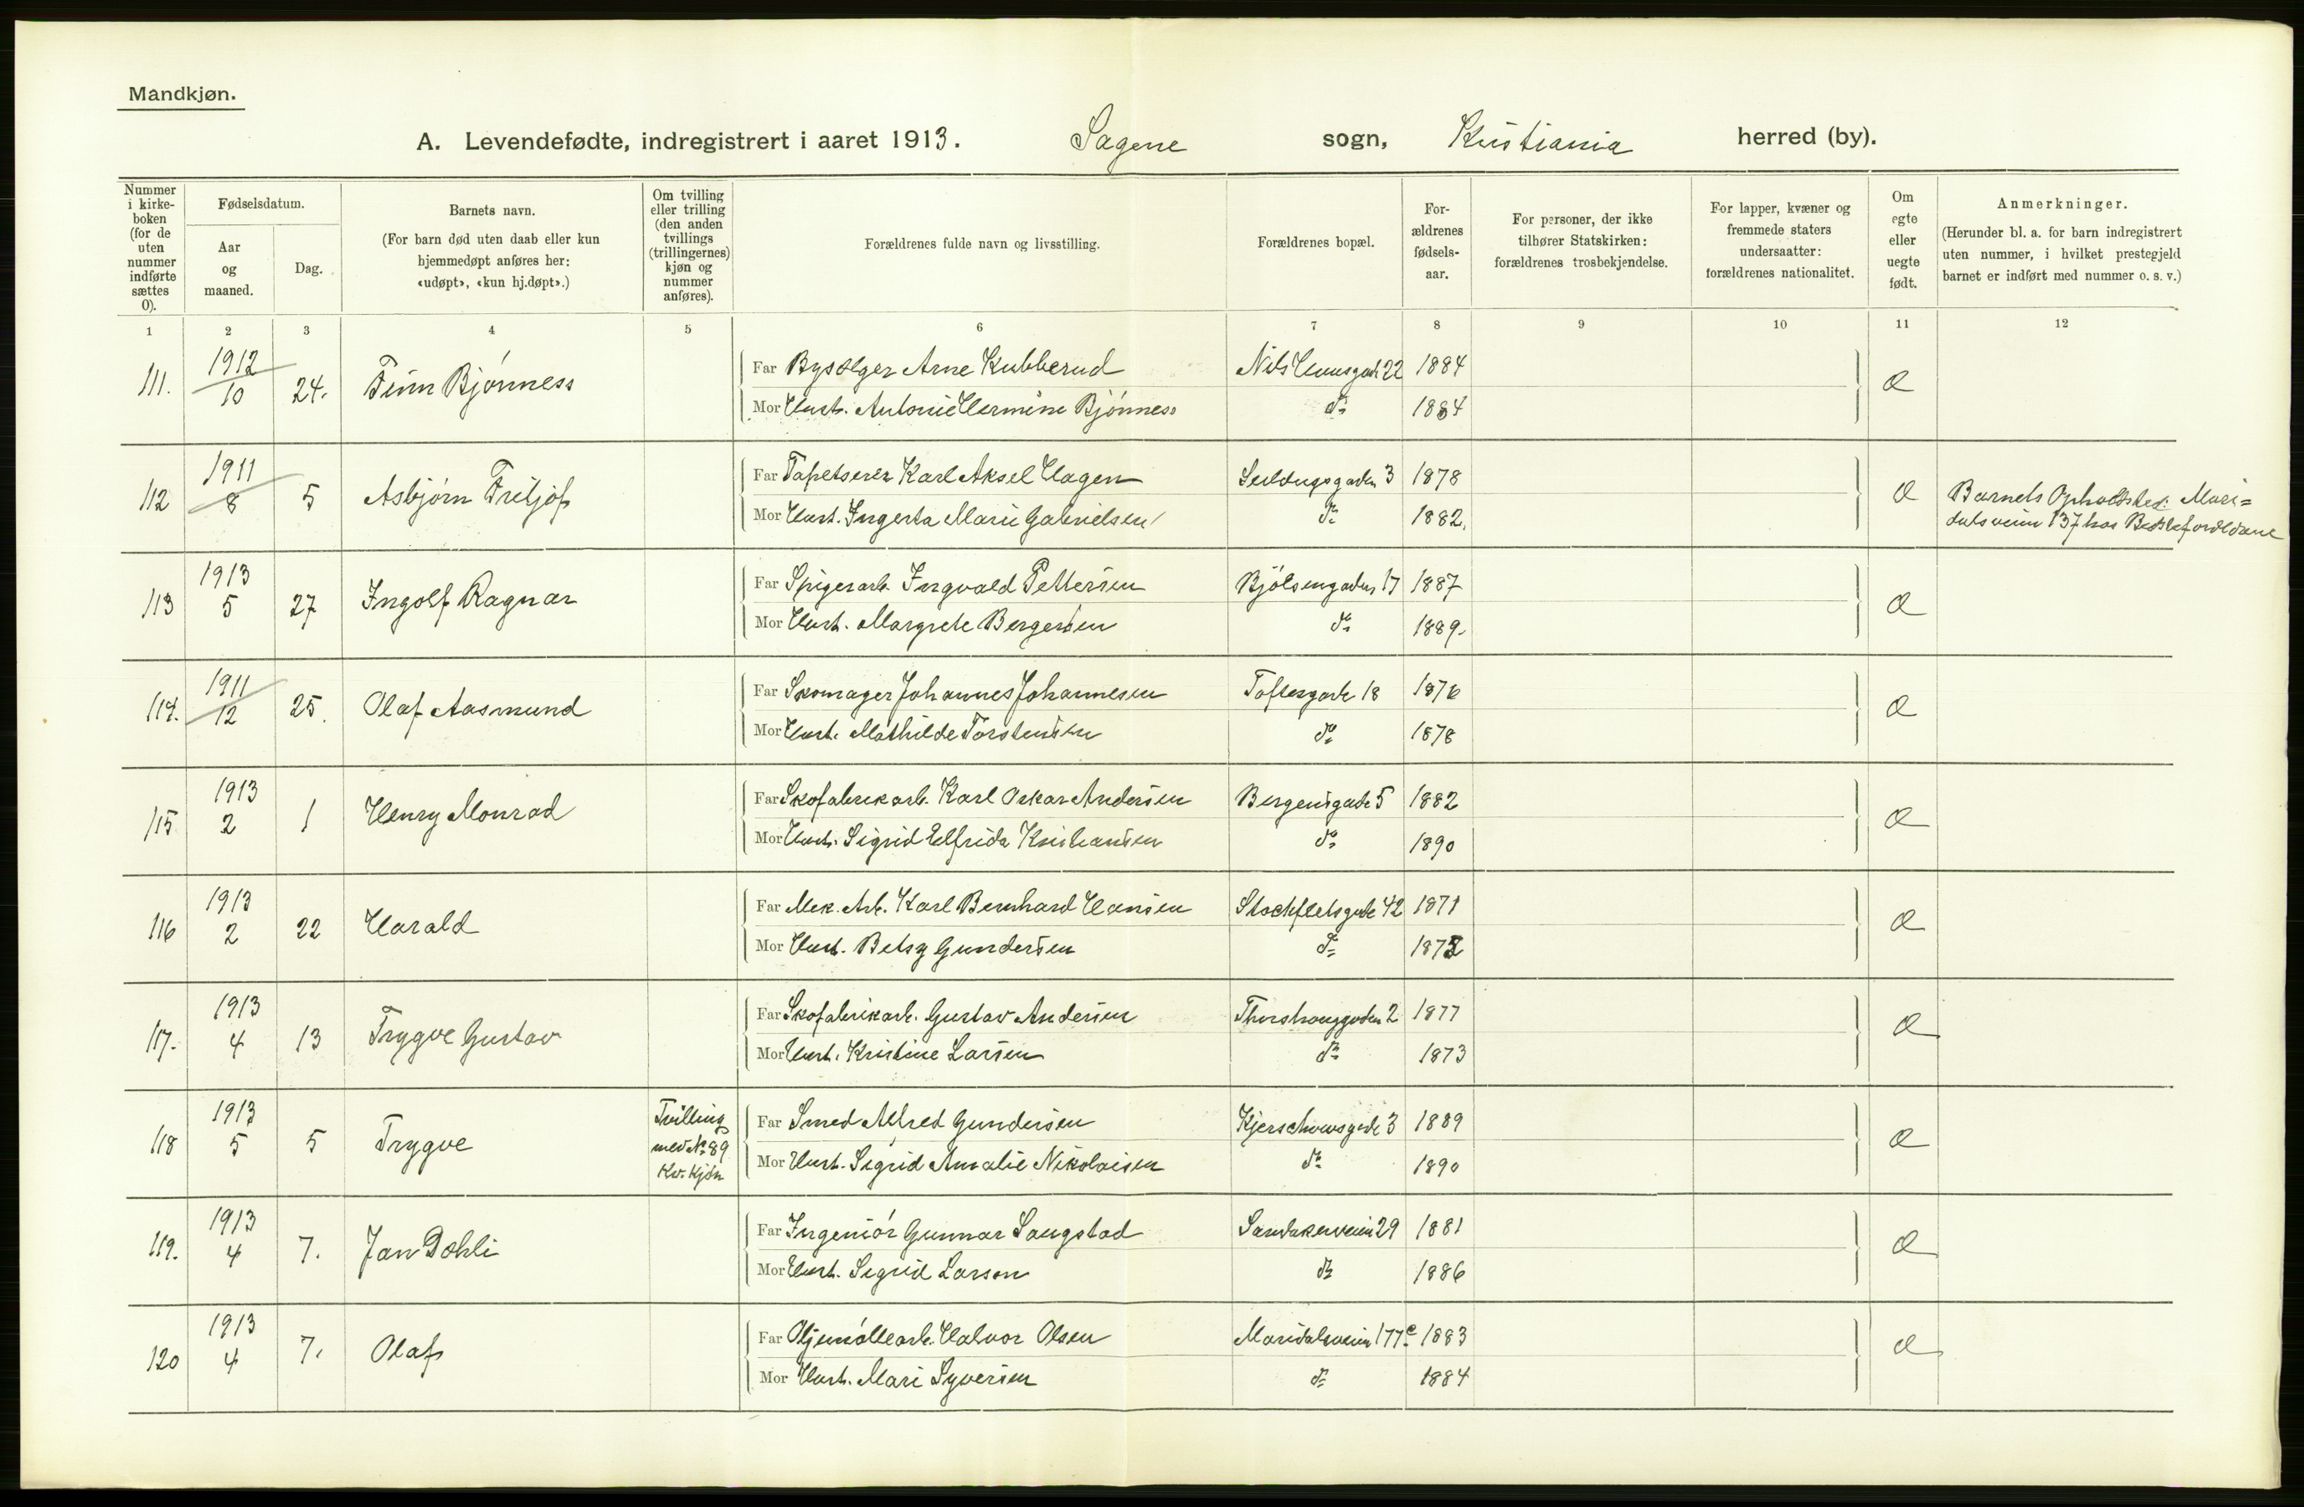 Mandkjøn.
A. Levendefødte, indregistrert i aaret 1913. Sagene sogn, Kristiania herred (by).
Nummer i kirkeboken (for de uten nummer indførte sættes 0).
Fødselsdatum.
Aar og maaned.
Dag.
Barnets navn.
(For barn død uten daab eller kun hjemmedøpt anføres her: «udøpt», «kun hj.døpt».)
Om tvilling eller trilling (den anden tvillings (trillingernes) kjøn og nummer anføres).
Forældrenes fulde navn og livsstilling.
Forældrenes bopæl.
Forældrenes fødselsaar.
For personer, der ikke tilhører Statskirken: forældrenes trosbekjendelse.
For lapper, kvæner og fremmede staters undersaatter: forældrenes nationalitet.
Om egte eller uegte født.
Anmerkninger.
(Herunder bl. a. for barn indregistrert uten nummer, i hvilket prestegjeld barnet er indført med nummer o. s. v.)
1 2 3 4 5 6 7 8 9 10 11 12
111. 1912 10 24. Finn Bjønness Far Arne Kubberud 22 1884 Æ
Mor Hust. Antonie Hermine Bjønness do 1884
112 1911 8 5 Asbjørn Fritjof Far Tapetserer Karl Aksel Hagen 3 1878 Æ Barnets Opholdssted: Mari=
Mor Hust. Ingerta Marie Gabrielsen do 1882. dalsveien 137 hos Bedsteforældrene
113 1913 5 27 Ingolf Ragnar Far Spigerarb. Ingvald Pettersen Bjölsengaden 17 1887 Æ
Mor Hust. Margrete Bergersen do 1889.
114. 1911 12 25. Olaf Aasmund Far Skomager Johannes Johannesen Toftesgade 18 1876 Æ
Mor Hust. Mathilde Torstensen do 1878
115 1913 2 1 Henry Monrad Far Skofabrikarb. Karl Oskar Andersen Bergensgade 5 1882 Æ
Mor Hust. Sigrid Elfrida Kristiansen do 1890
116 1913 2 22 Harald Far Mek. Arb. Karl Bernhard Hansen Stockfletsgade 42 1871 Æ
Mor Hust. Betsy Gundersen do 1872
117. 1913 4 13 Trygve Gustav Far Skofabrikarb. Gustav Andersen Thorshouggaden 2 1877 Æ
Mor Hust. Kristine Larsen do 1873
118 1913 5 5 Trygve Tvilling med No 89 Kv. Kjøn Far Smed Alfred Gundersen Kjerschowsgade 3 1889 Æ
Mor Hust. Sigrid Amalie Nikolaisen do 1890
119. 1913 4 7. Jan Dæhli Far Ingeniör Gunnar Sangstad Sandakerveien 29 1881 Æ
Mor Hust. Sigrid Larson do 1886
120 1913 4 7. Olaf Far Oljemöllearb. Halvor Olsen Maridalsveien 177c 1883 Æ
Mor Hust. Mari Syversen do 1884